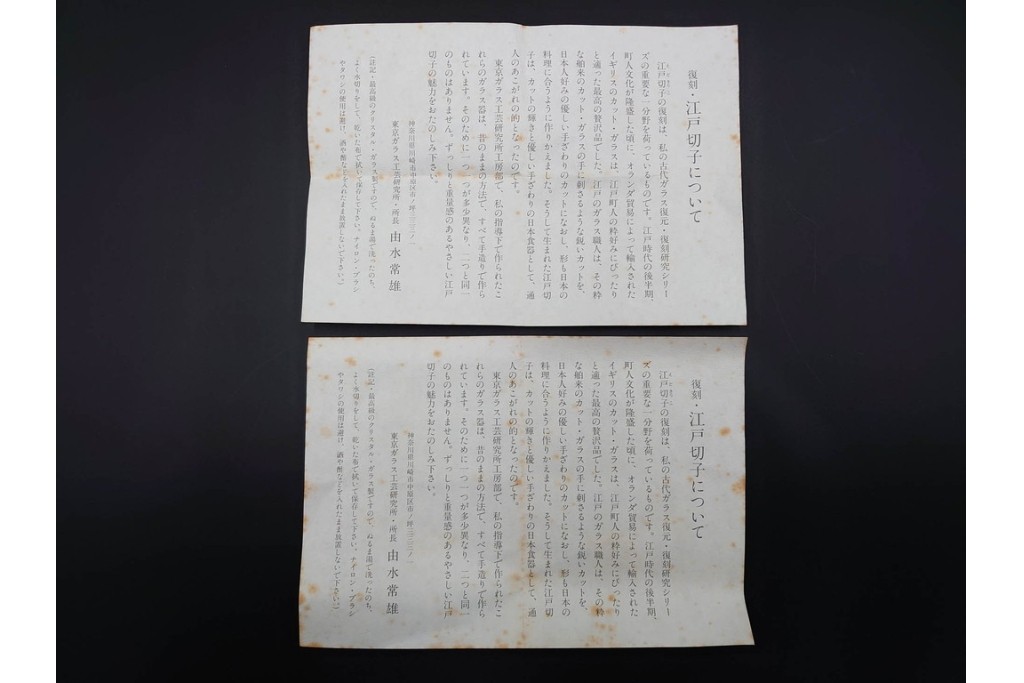 復刻・江戸切子について
江戸切子の復刻は、私の古代ガラス復元・復刻研究シリー
ズの重要な一分野を荷っているものです。江戸時代の後半期、
町人文化が隆盛した頃に、オランダ貿易によって輸入された
イギリスのカット・ガラスは、江戸町人の粋好みにぴったり
と適った最高の贅沢品でした。江戸のガラス職人は、その粋
な舶来のカット・ガラスの手に刺さるような鋭いカットを、
日本人好みの優しい手ざわりのカットになおし、形も日本の
料理に合うように作りかえました。そうして生まれた江戸切
子は、カットの輝きと優しい手ざわりの日本食器として、通
人のあこがれの的となったのです。
東京ガラス工芸研究所工房部で、私の指導下で作られたこ
れらのガラス器は、昔のままの方法で、すべて手造りで作ら
れています。そのために一つ一つが多少異なり、二つと同一
のものはありません。ずっしりと重量感のあるやさしい江戸
切子の魅力をおたのしみ下さい。
神奈川県川崎市中原区市ノ坪
東京ガラス工芸研究所・所長 由水常雄
(註記・最高級のクリスタル・ガラス製ですので、ぬるま湯で洗ったのち、
よく水切りをして、乾いた布で拭いて保存して下さい。ナイロン・ブラシ
やタワシの使用は避け、酒や酢などを入れたまま放置しないで下さい。)
復刻・江戸切子について
江戸切子の復刻は、私の古代ガラス復元・復刻研究シリー
ズの重要な一分野を荷っているものです。江戸時代の後半期、
町人文化が隆盛した頃に、オランダ貿易によって輸入された
イギリスのカット・ガラスは、江戸町人の粋好みにぴったり
と適った最高の贅沢品でした。江戸のガラス職人は、その粋
な舶来のカット・ガラスの手に刺さるような鋭いカットを、
日本人好みの優しい手ざわりのカットになおし、形も日本の
料理に合うように作りかえました。そうして生まれた江戸切
子は、カットの輝きと優しい手ざわりの日本食器として、通
人のあこがれの的となったのです。
東京ガラス工芸研究所工房部で、私の指導下で作られたこ
れらのガラス器は、昔のままの方法で、すべて手造りで作ら
れています。そのために一つ一つが多少異なり、二つと同一
のものはありません。ずっしりと重量感のあるやさしい江戸
切子の魅力をおたのしみ下さい。
神奈川県川崎市中原区市ノ坪
東京ガラス工芸研究所・所長 由水常雄
(註記・最高級のクリスタル・ガラス製ですので、ぬるま湯で洗ったのち、
よく水切りをして、乾いた布で拭いて保存して下さい。ナイロン・ブラシ
やタワシの使用は避け、酒や酢などを入れたまま放置しないで下さい。)